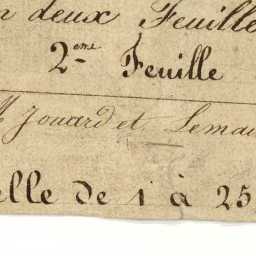 n deux Feuille
2eme Feuille
M Jouard et Lemai
elle de 1 à 25